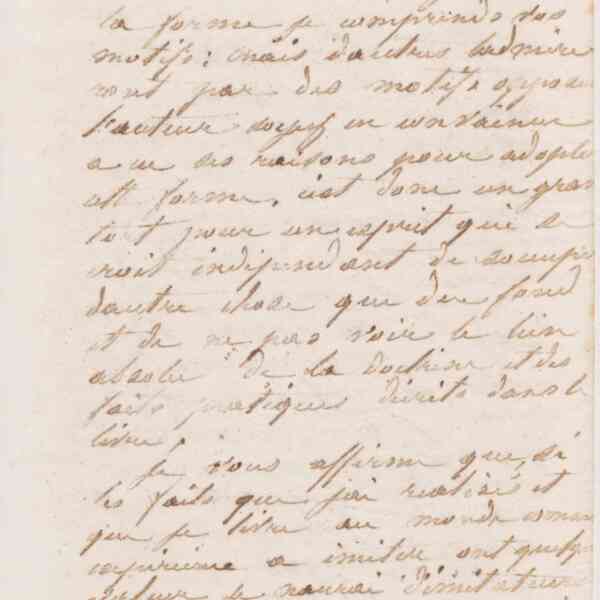 la forme je comprends vos
motifs; mais d'autres l'admire
ront par des motifs opposés
l'auteur soyez en convaincu
a eu ses raisons pour adopter
cette forme. c'est donc un grand
tort pour un esprit qui se
croit indépendant de s'occuper
d'autre chose que du fond
et de ne pas voir le lien
absolu de la doctrine et des
faits pratiques décrits dans le
livre.
Je vous affirme que, si
les faits que j'ai réalisés et
que je livre au monde comme
expérience a imiter ont quelque
valeur je d'imitateurs